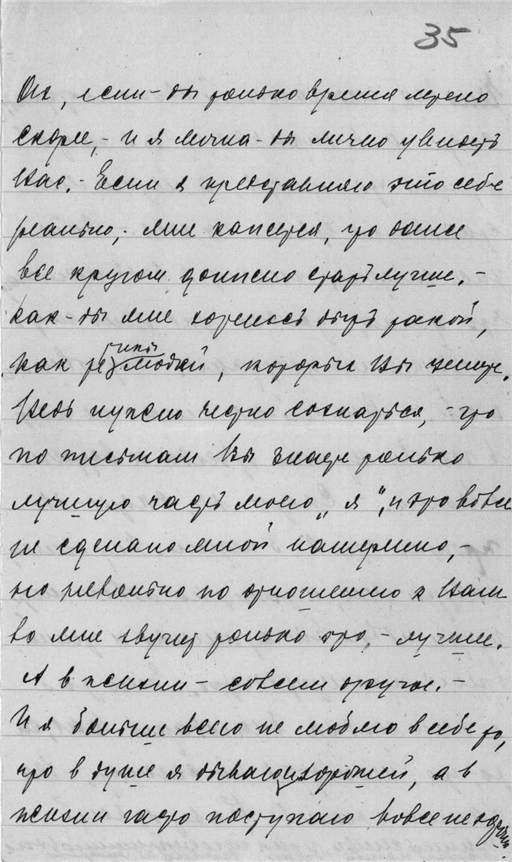 35
Ах, если-бы только время летело
скорее, - и я могла-бы лично увидеть
Вас. - Если я представляю это себе
реально, - мне кажется, что даже
все кругом должно стать лучше. -
Как-бы мне хотелось быть такой,
как те типы людей, которых Вы цените.
Ведь нужно честно сознаться, - что
по письмам Вы знаете только
лучшую часть моего „я", и это вовсе
не сделано мной намеренно, -
но невольно по отношению к Вам
во мне звучит только это, - лучшее.
А в жизни - совсем другое. -
И я больше всего не люблю в себе то,
что в душе я бываю и хорошей, а в
жизни часто поступаю вовсе не